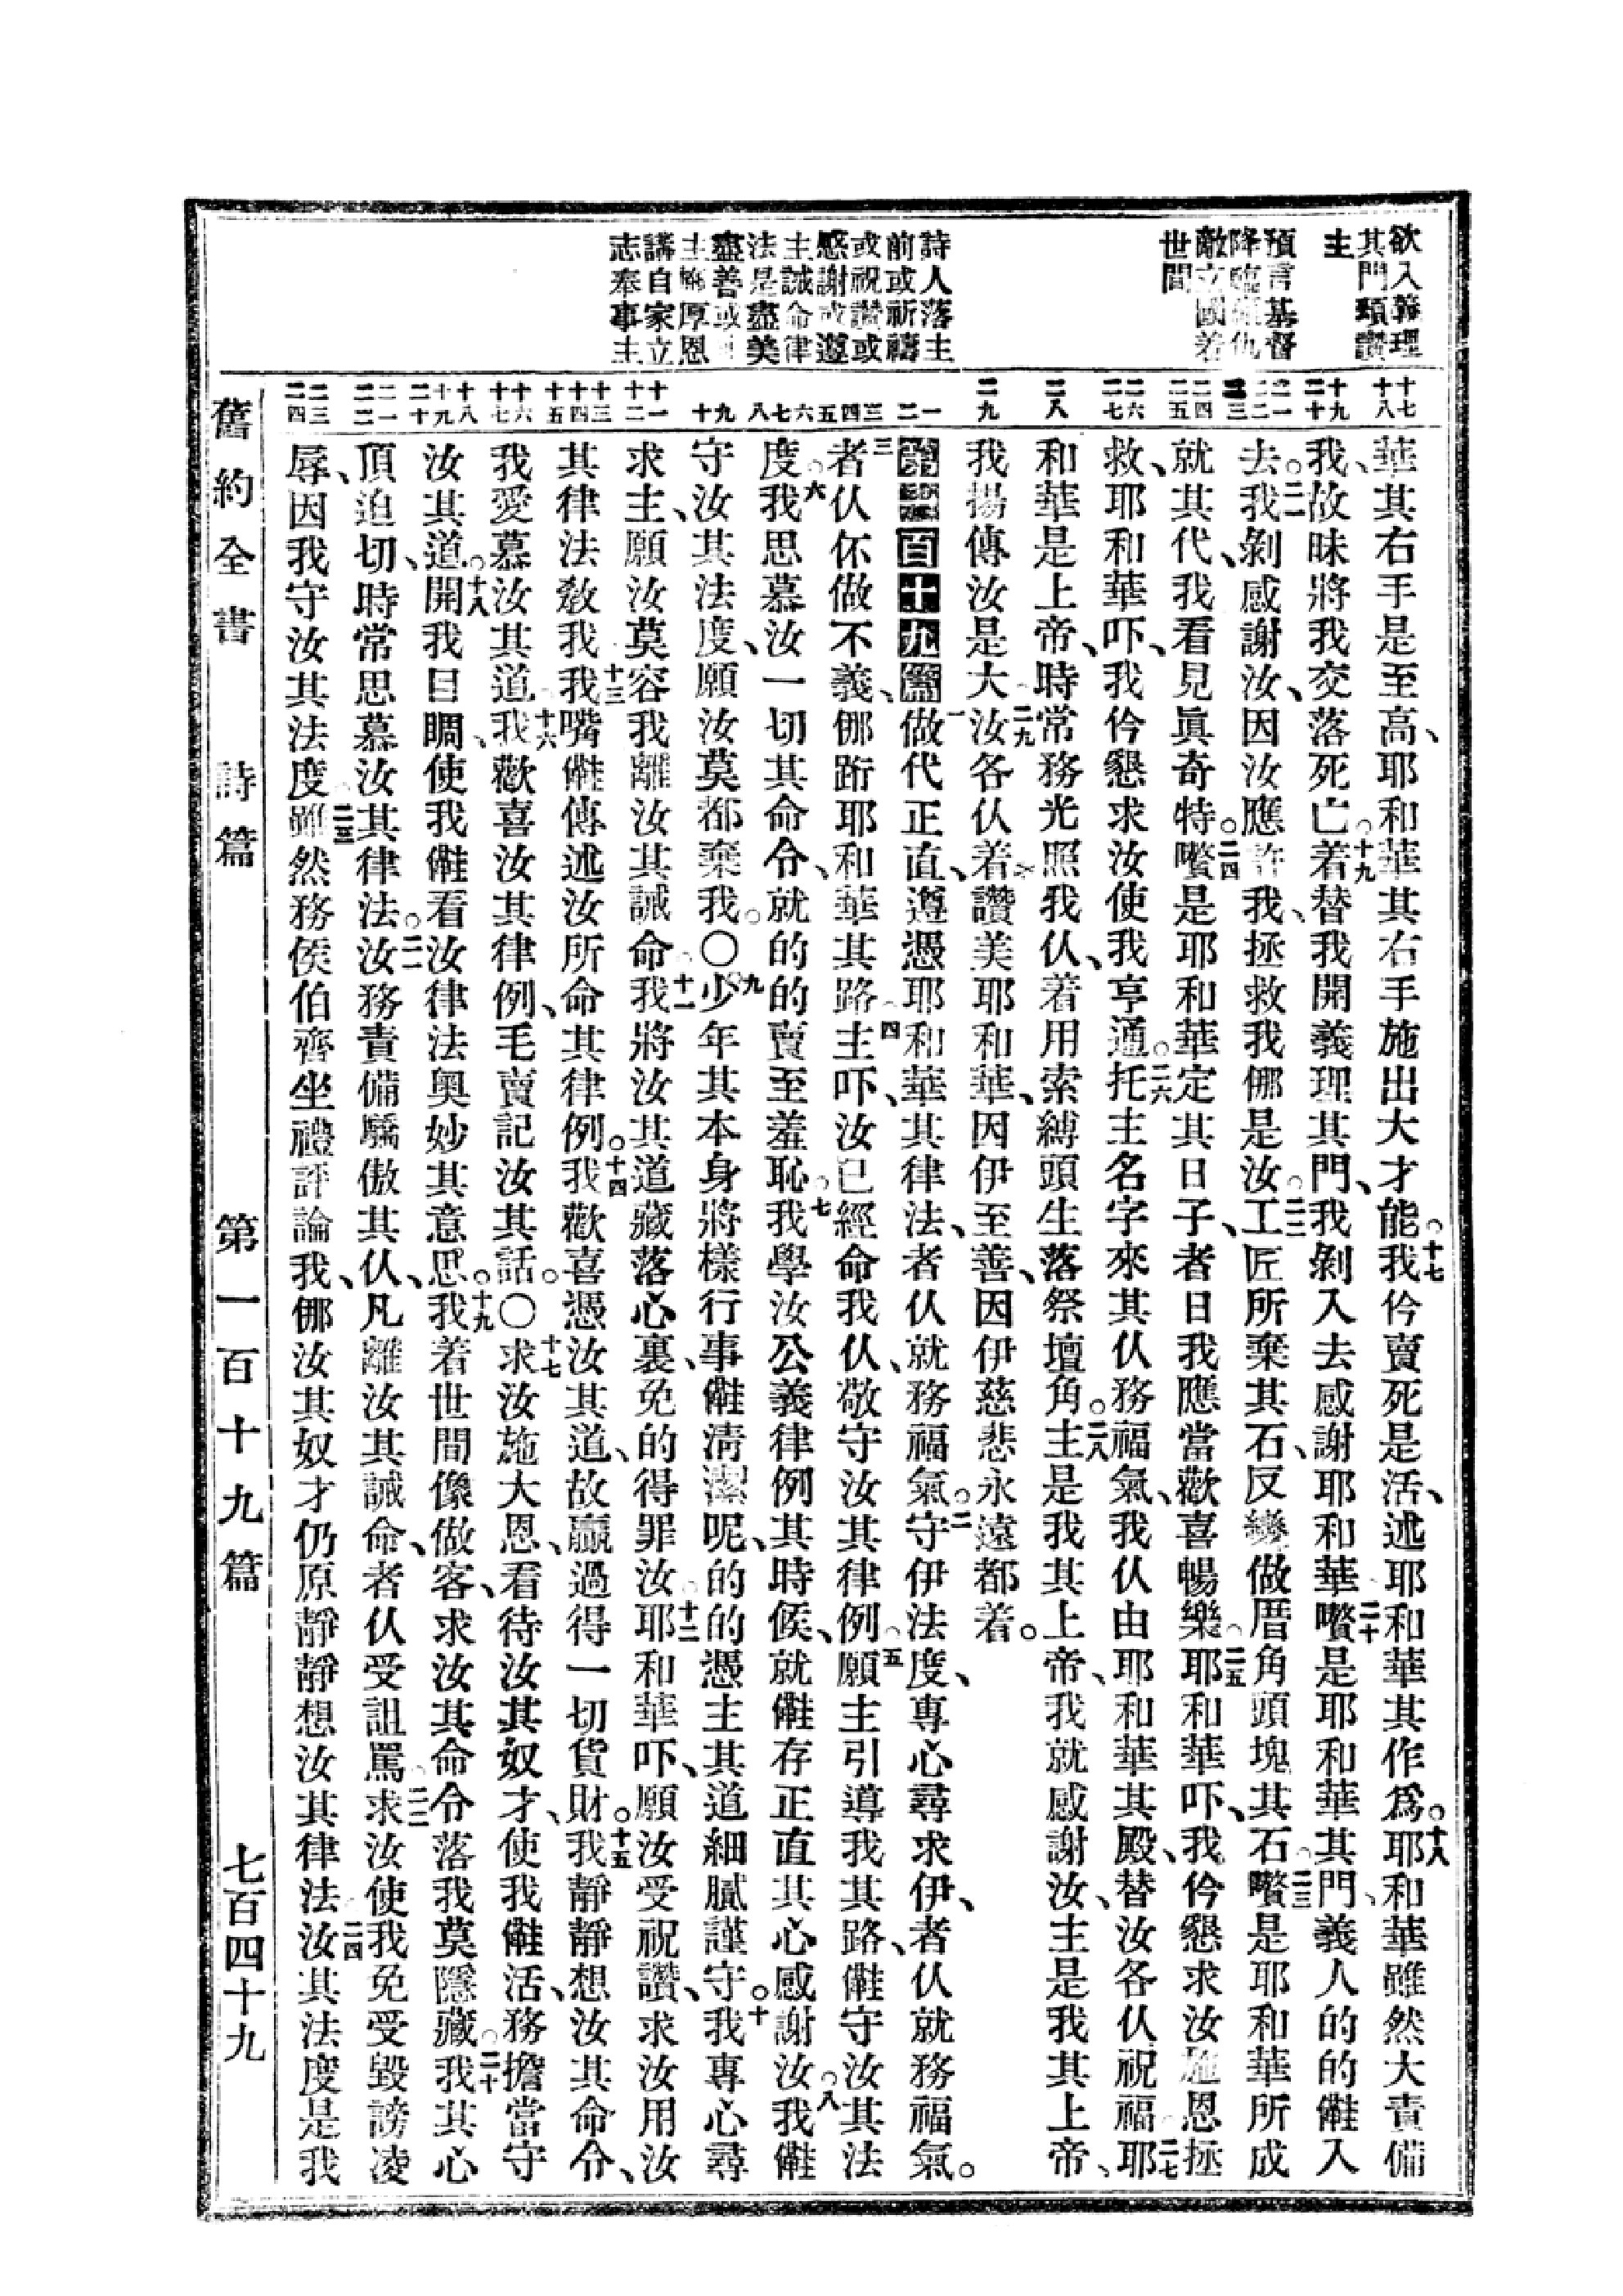 欲入義理
其門頌讚
主
預言基督
降臨仇
敵立國若
世間
詩人落主
前或祈禱
或祝讚或
感謝或遵
主誡命律
法是盡美
盡善或
主施厚恩
講自家立
志奉事主
十七
十八
十九
二十
二一
二二
二三
二四
二五
二六
二七
二八
二九
一
二
三
四
五
六
七
八
九
十
十一
十二
十三
十四
十五
十六
十七
十八
十九
二十
二一
二二
二三
二四
華其右手是至高、耶和華其右手施出大才能。十七我仱賣死是活、述耶和華其作爲。十八耶和華雖然大責備
我、故昧將我交落死亡。十九着替我開義理其門、我剝入去感謝耶和華。二十嚽是耶和華其門、義人的的䧹入
去。二一我剝感謝汝、因汝應許我、拯救我㑚是汝。二二工匠所棄其石、反變做厝角頭塊其石。二三嚽是耶和華所成
就其代、我看見眞奇特。二四嚽是耶和華定其日子、者日我應當歡喜暢樂。二五耶和華吓、我仱懇求汝施恩拯
救、耶和華吓、我仱懇求汝使我亨通。二六托主名字來其仈務福氣、我仈由耶和華其殿、替汝各仈祝福。二七耶
和華是上帝、時常務光照我仈、着用索縛頭生落祭壇角。二八主是我其上帝、我就感謝汝、主是我其上帝、
我揚傳汝是大。二九汝各仈着讚美耶和華、因伊至善、因伊慈悲永遠都着。
第一百十九篇 一做代正直、遵憑耶和華其律法、者仈就務福氣。二守伊法度、專心尋求伊、者仈就務福氣。
三者仈伓做不義、㑚跨耶和華其路。四主吓、汝已經命我仈、敬守汝其律例。五願主引導我其路、䧹守汝其法
度。六我思慕汝一切其命令、就的的賣至羞恥。七我學汝公義律例其時候、就䧹存正直其心感謝汝。八我䧹
守汝其法度、願汝莫都棄我。〇九少年其本身將樣行事䧹清潔呢、的的憑主其道細膩謹守。十我專心尋
求主、願汝莫容我離汝其誡命。十一我將汝其道藏落心裏、免的得罪汝。十二耶和華吓、願汝受祝讚、求汝用汝
其律法敎我。十三我嘴䧹傳述汝所命其律例。十四我歡喜憑汝其道、故贏過得一切貨財。十五我靜靜想汝其命令、
我愛慕汝其道。十六我歡喜汝其律例、毛賣記汝其話。〇十七求汝施大恩、看待汝其奴才、使我䧹活、務擔當守
汝其道。十八開我目睭、使我䧹看汝律法奥妙其意思。十九我着世間像做客、求汝其命令落我莫隱藏。二十我其心
頂迫切、時常思慕汝其律法。二一汝務責備驕傲其仈、凡離汝其誡命、者仈受詛罵。二二求汝使我免受毀謗凌
辱、因我守汝其法度。二三雖然務侯伯齊坐禮評論我、㑚汝其奴才仍原靜靜想汝其律法。二四汝其法度是我
舊約全書 詩篇 第一百十九篇 七百四十九